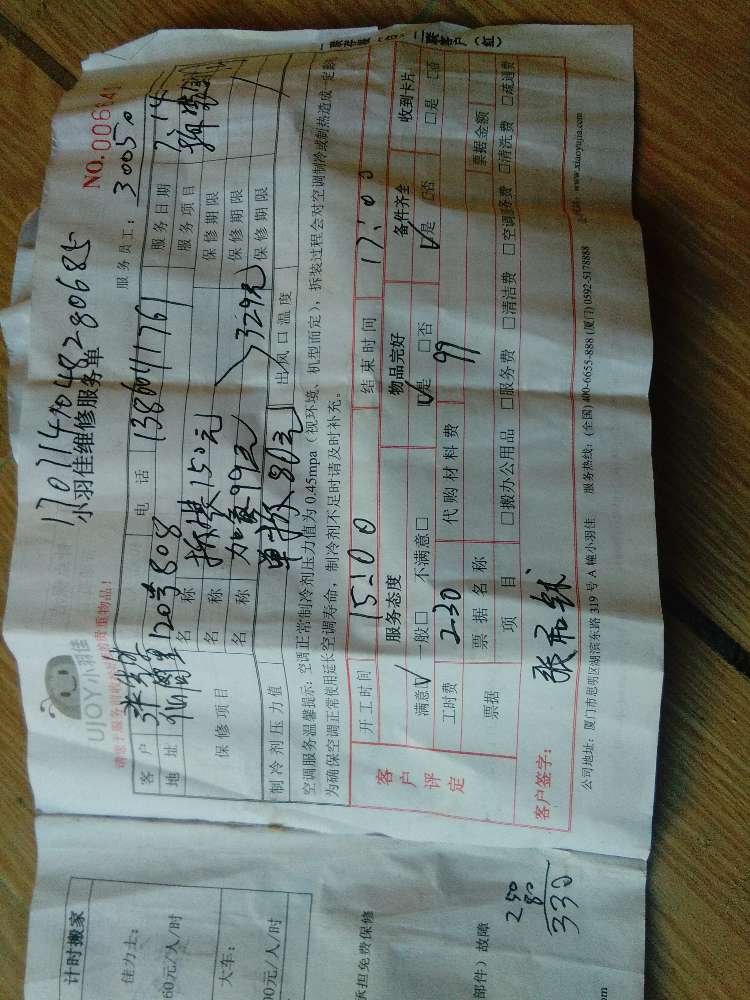 17071149048280685
小羽佳维修服务单
NO.0061
UJOY小羽佳
服务员工：30050
客户
电话 1380041761
服务日期 7.14
地址 120号808
服务项目
保修项目
名称 拆装150元
保修期限
名称 加氟99元
329元
保修期限
名称 单拆80元
保修期限
制冷剂压力值
出风口温度
空调服务温馨提示：空调正常制冷剂压力值为0.45mpa（视环境、机型而定），拆装过程会对空调制冷或制热造成一定影
为确保空调正常使用延长空调寿命，制冷剂不足时请及时补充。
客户评定
开工时间 15:00
结束时间 17:00
服务态度
物品完好
备件齐全
收到卡片
满意☑ 一般□ 不满意□
☑是 □否
☑是 □否
□是 □否
工时费 230
代购材料费 99
票据
票据名称
票据金额
项目
□搬办公用品 □服务费 □清洁费 □空调务费 □清洗费 □疏通费
客户签字：
公司地址：厦门市思明区湖滨东路319号A幢小羽佳
服务热线：(全国)400-6655-888 (厦门)0592-5178888
www.xiaoyujia.com
计时搬家
佳力士：
60元/人/时
大车：
00元/人/时
承担免费保修
部件）故障
250
80
330
om